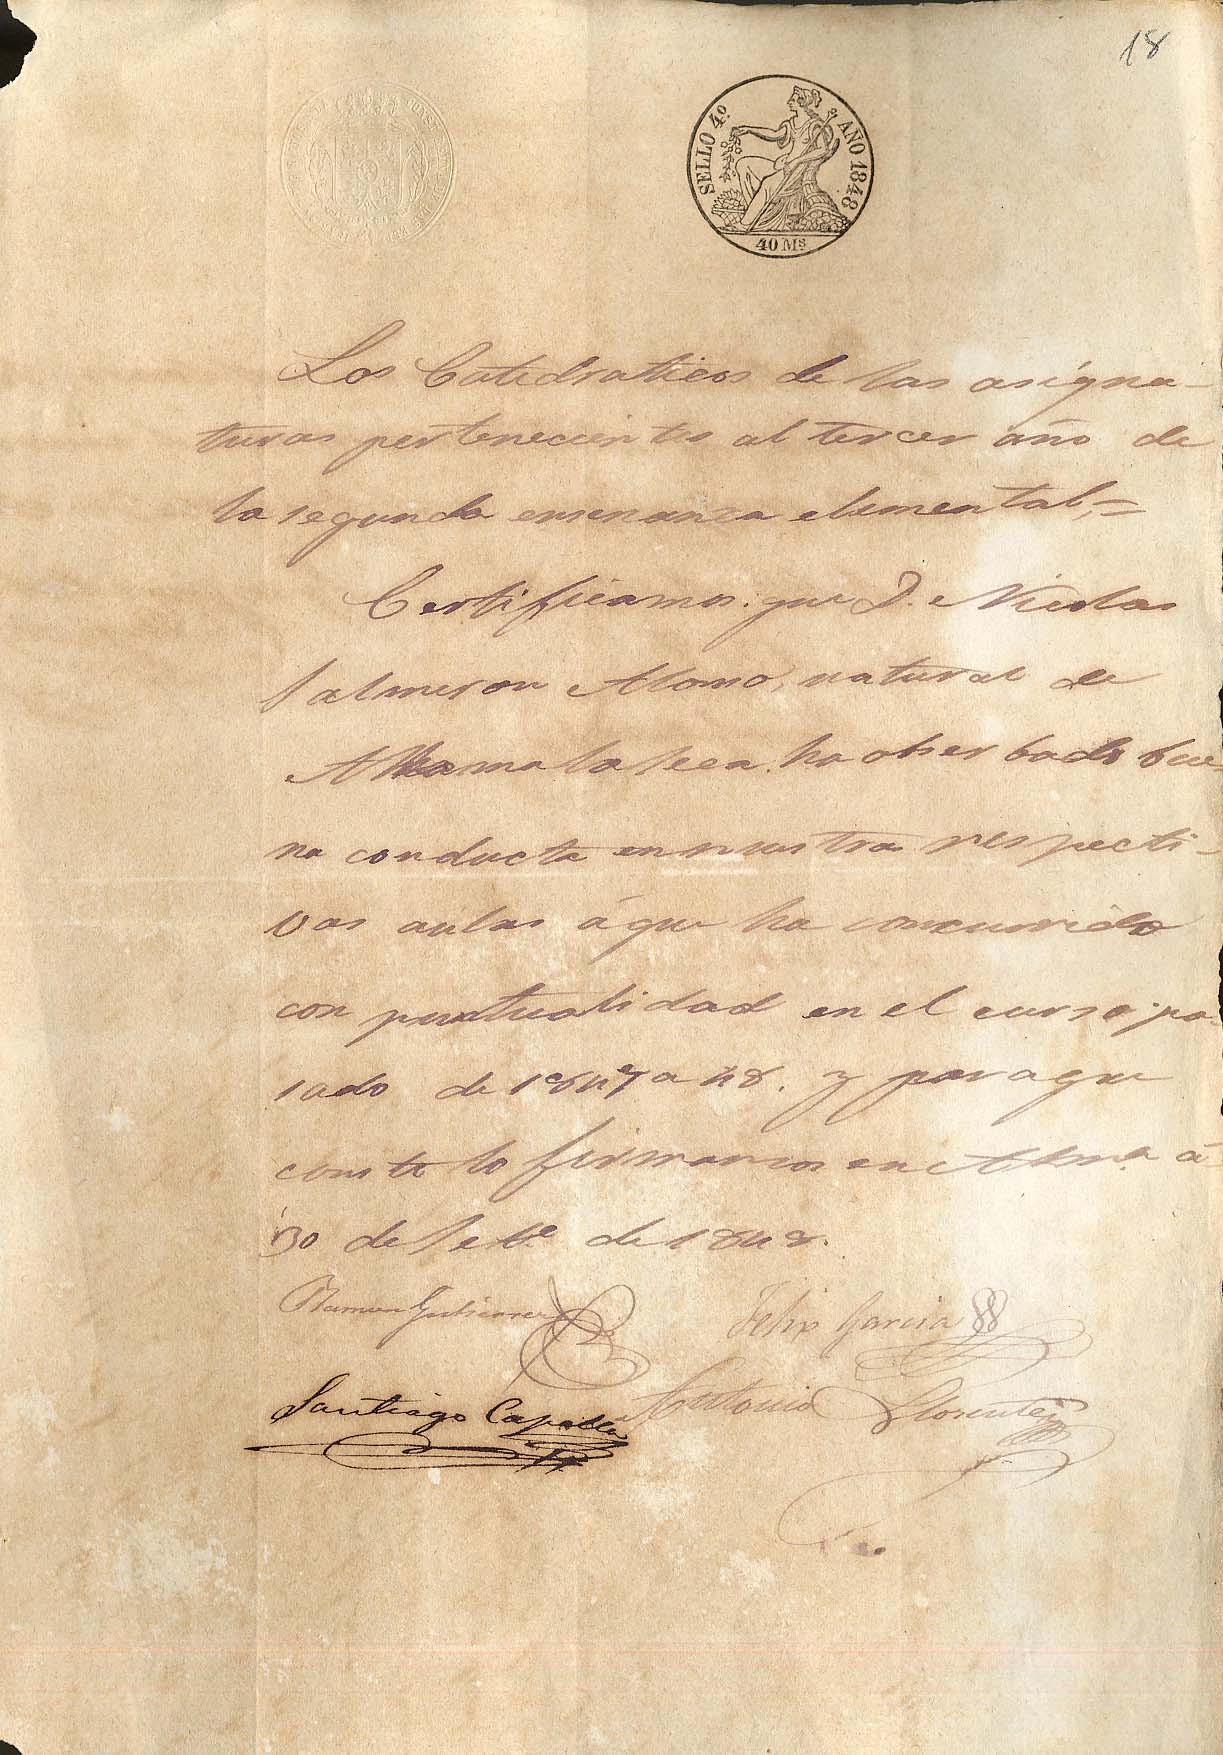 18
SELLO 4º AÑO 1848
40 Ms
Los Catedraticos de las asigna-
turas pertenecientes al tercer año de
la segunda ensenanza elemental,=
Certificamos que D. Nicolas
Salmeron Alonso, natural de
Alhama la Seca ha obserbado bue-
na conducta en nuestras respecti-
vas aulas á que ha concurrido
con puntualidad en el curso pa-
sado de 1847 a 48. y para que
conste lo firmamos en Alma. á
30 de Setbe. de 1848.
Ramon Gutierrez Felix Garcia
Santiago Capella Antonio Llorente